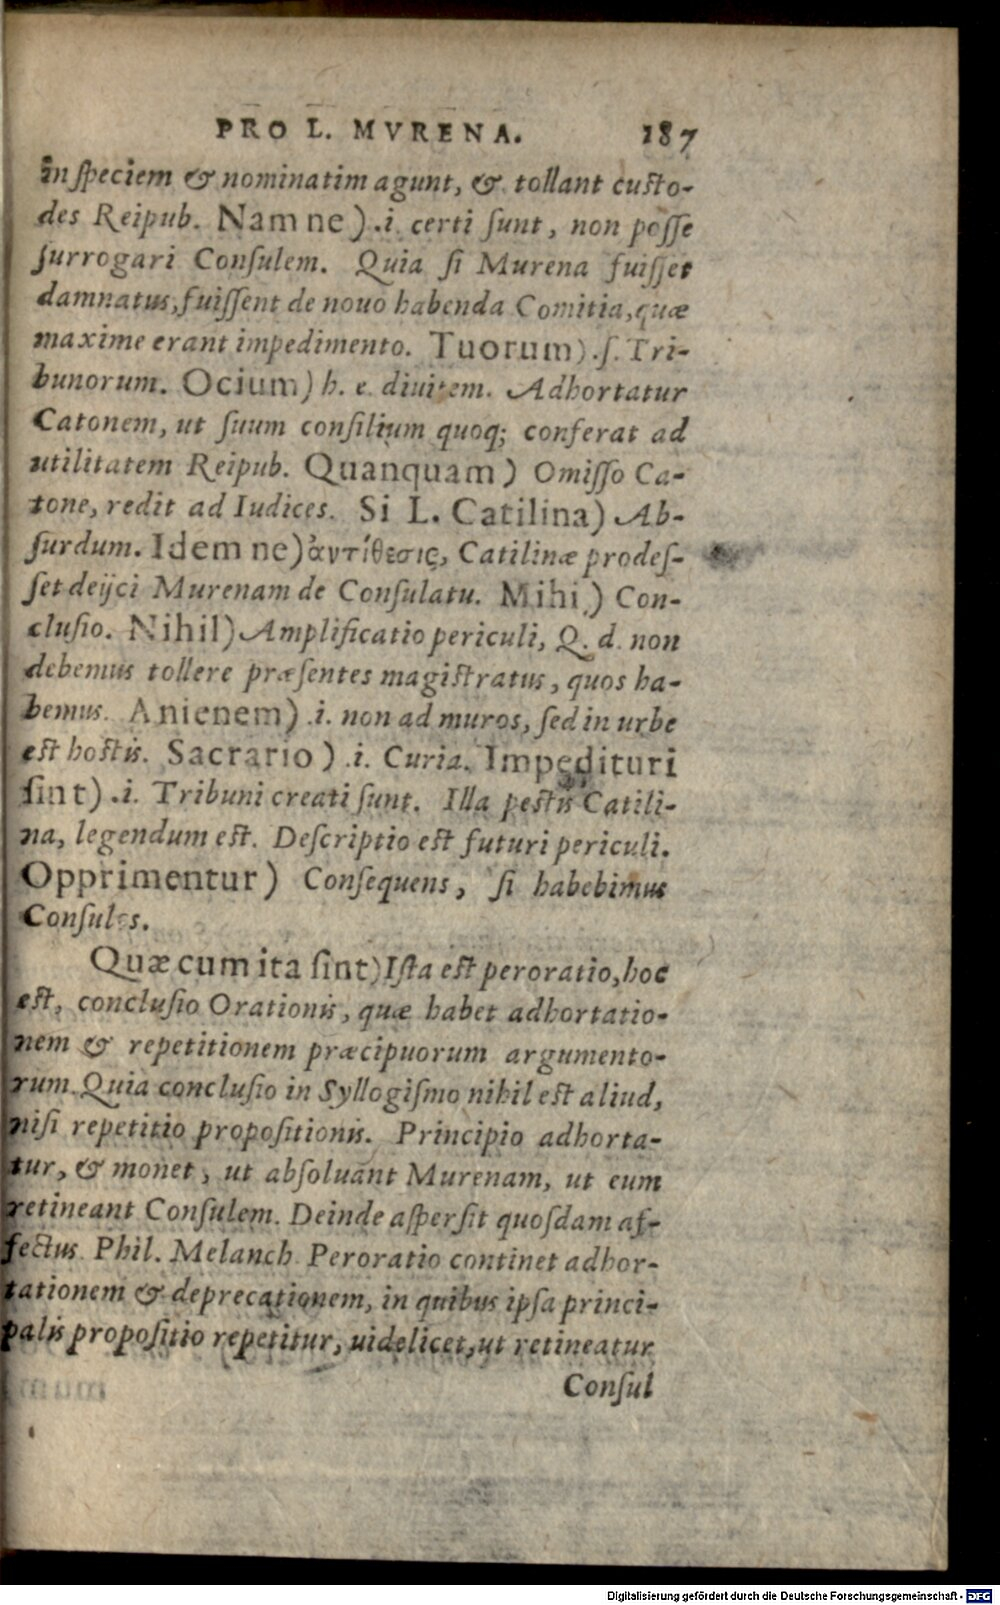 PRO L. MVRENA. 187
in ſpeciem & nominatim agunt, & tollant cuſto-
des Reipub. Nam ne) .i. certi ſunt, non poſſe
ſurrogari Conſulem. Quia ſi Murena fuiſſet
damnatus, fuiſſent de nouo habenda Comitia, quæ
maxime erant impedimento. Tuorum) .ſ. Tri-
bunorum. Ocium) h. e. diuitem. Adhortatur
Catonem, ut ſuum conſilium quoq; conferat ad
utilitatem Reipub. Quanquam) Omiſſo Ca-
tone, redit ad Iudices. Si L. Catilina) Ab-
ſurdum. Idem ne) ἀντίθεσις, Catilinæ prodeſ-
ſet deijci Murenam de Conſulatu. Mihi) Con-
cluſio. Nihil) Amplificatio periculi, Q. d. non
debemus tollere præſentes magiſtratus, quos ha-
bemus. Anienem) .i. non ad muros, ſed in urbe
eſt hoſtis. Sacrario) .i. Curia. Impedituri
ſint) .i. Tribuni creati ſunt. Illa peſtis Catili-
na, legendum eſt. Deſcriptio eſt futuri periculi.
Opprimentur) Conſequens, ſi habebimus
Conſules.
Quæ cum ita ſint) Iſta eſt peroratio, hoc
eſt, concluſio Orationis, quæ habet adhortatio-
nem & repetitionem præcipuorum argumento-
rum. Quia concluſio in Syllogiſmo nihil eſt aliud,
niſi repetitio propoſitionis. Principio adhorta-
tur, & monet, ut abſoluant Murenam, ut eum
retineant Conſulem. Deinde aſperſit quoſdam af-
fectus. Phil. Melanch. Peroratio continet adhor-
tationem & deprecationem, in quibus ipſa princi-
palis propoſitio repetitur, uidelicet, ut retineatur
Conſul
Digitalisierung gefördert durch die Deutsche Forschungsgemeinschaft - DFG